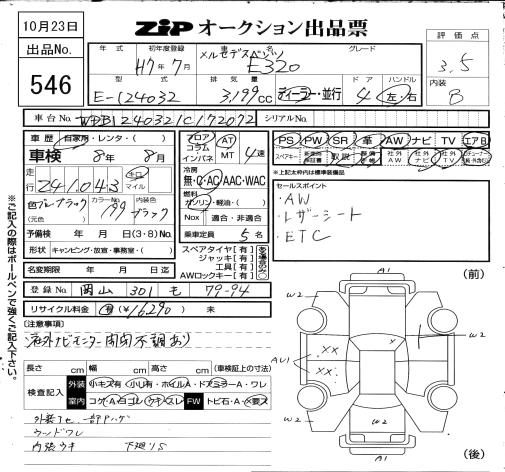 10月23日
ZIP オークション出品票
出品No.
546
年式
初年度登録
車名
グレード
H7年7月
メルセデスベンツ
E320
評価点
3.5
内装
B
型式
排気量
ドア
ハンドル
E-124032
3,199cc
ディーラー・並行
4
左・右
車台No.
WDB1240321C172072
シリアルNo.
車歴
自家用・レンタ・( )
車検
8年 8月
フロア
コラム
インパネ
AT
MT
4速
走行
241043
キロ
マイル
冷房
無・C・AC・AAC・WAC
燃料
ガソリン・軽油・( )
色
ブラック
(元色)
カラーNo.
199
内装色
ブラック
Nox
適合・非適合
予備検
年 月 日(3・8)No.
乗車定員
5名
形状
キャンピング・放宣・事務室・( )
名変期限
年 月 日迄
スペアタイヤ[有]
ジャッキ[有]
工具[有]
AWロックキー[有]
PS PW SR 革 AW ナビ TV エアB
スペアキー
取説
社外AW
社外ナビ
社外TV
*上記太枠内は標準装備品
セールスポイント
・AW
・レザーシート
・ETC
登録No.
岡山 301 も 79-94
リサイクル料金
有(¥16,290) 未
[注意事項]
社外ナビモニター開閉不調あり
長さ cm 幅 cm 高さ cm (車検証上の寸法)
検査記入
外装
小キズ有・小凹有・ホイルA・ドアミラーA・ワレ
室内
コゲ・A・ヨゴレ・ウキ・スレ
FW
トビ石・A・×要ス
ウッドワレ
内張ウキ
下廻りS
※ご記入の際はボールペンで強くご記入下さい。
(前)
A1
W2
W2
AU1
XX
XX
X
W2
W2
W2
A1
(後)